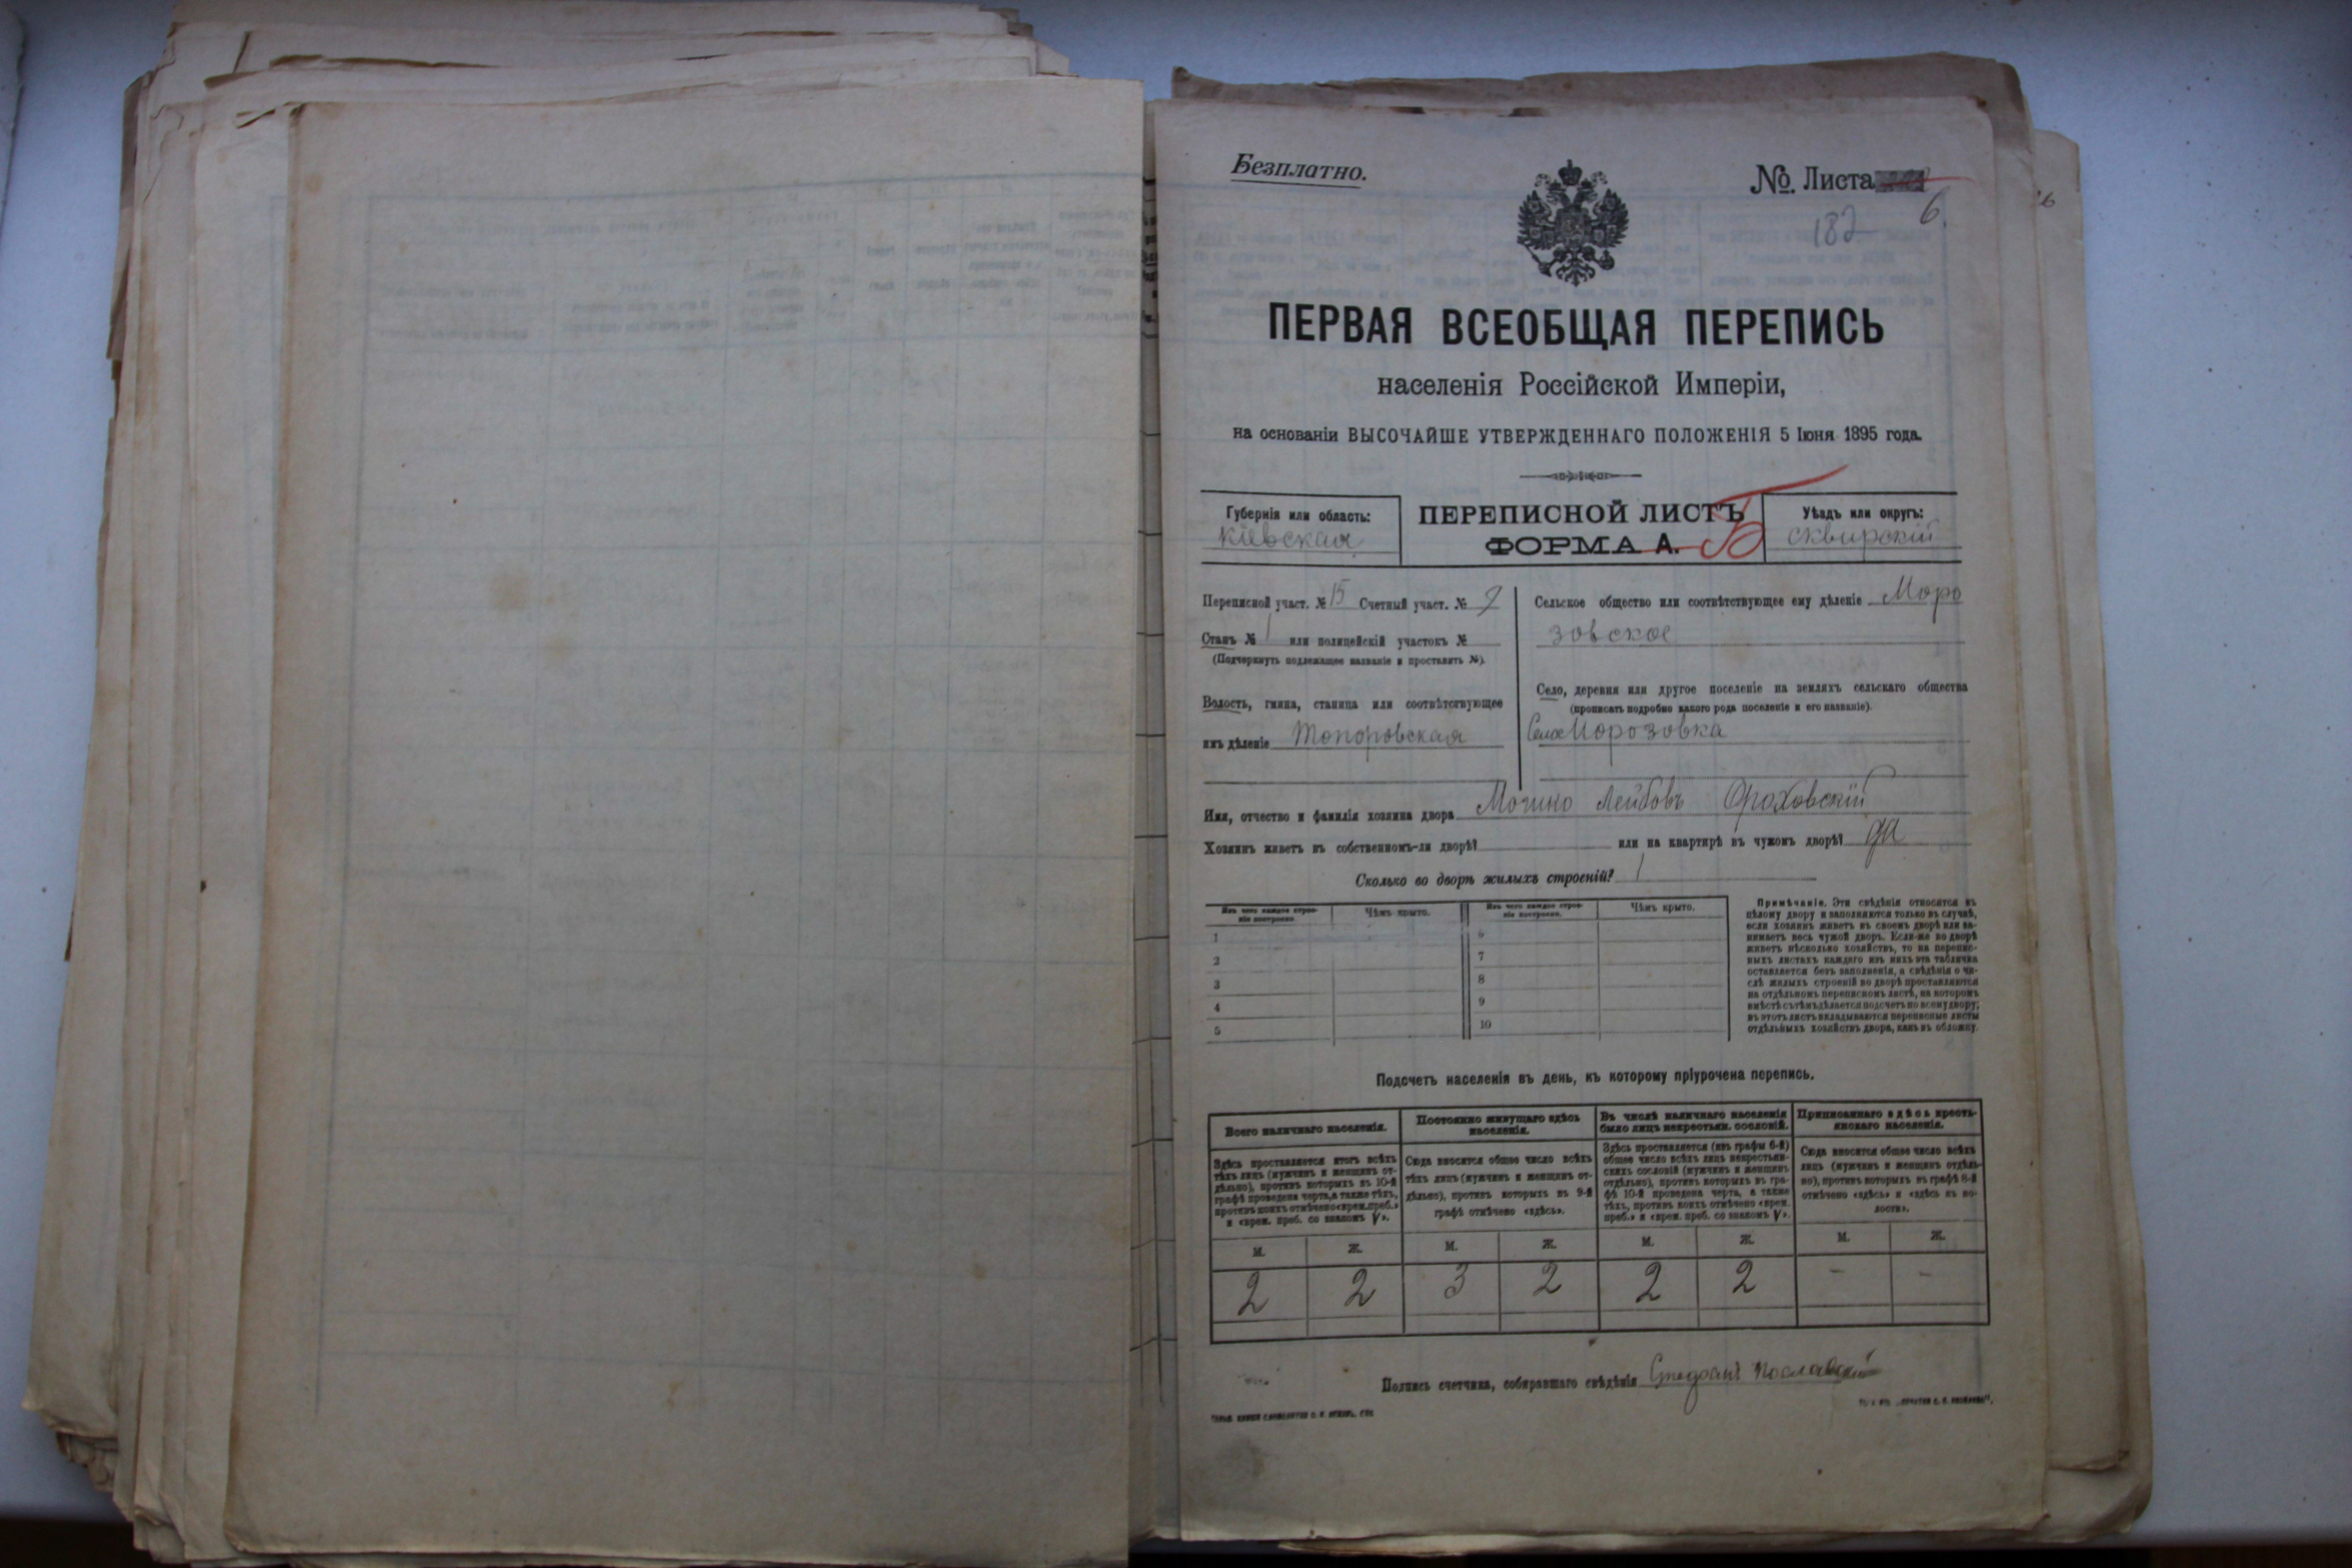 Безплатно.
№ Листа
6.
182
ПЕРВАЯ ВСЕОБЩАЯ ПЕРЕПИСЬ
населенія Россійской Имперіи,
на основаніи ВЫСОЧАЙШЕ УТВЕРЖДЕННАГО ПОЛОЖЕНІЯ 5 Іюня 1895 года.
Губернія или область:
Кіевская
ПЕРЕПИСНОЙ ЛИСТЪ
ФОРМА А. Б
Уѣздъ или округъ:
Сквирскій
Переписной участ. № 15 Счетный участ. №
Станъ № 1 или полицейскій участокъ №
(Подчеркнуть подлежащее названіе и проставить №).
Волость, гмина, станица или соотвѣтствующее
имъ дѣленіе Топоровская
Сельское общество или соотвѣтствующее ему дѣленіе Моро
зовское
Село, деревня или другое поселеніе на земляхъ сельскаго общества
(прописать подробно какого рода поселеніе и его названіе).
Село Морозовка
Имя, отчество и фамилія хозяина двора Мошко Лейбовъ Ороховскій
Хозяинъ живетъ въ собственномъ-ли дворѣ? или на квартирѣ въ чужомъ дворѣ? да
Сколько во дворѣ жилыхъ строеній? 1
Изъ чего каждое строе-
ніе построено.
Чѣмъ крыто.
Изъ чего каждое строе-
ніе построено.
Чѣмъ крыто.
1 6
2 7
3 8
4 9
5 10
Примѣчаніе. Эти свѣдѣнія относятся къ
цѣлому двору и заполняются только въ случаѣ,
если хозяинъ живетъ въ своемъ дворѣ или за-
нимаетъ весь чужой дворъ. Если-же во дворѣ
живетъ нѣсколько хозяйствъ, то на перепис-
ныхъ листахъ каждаго изъ нихъ эта табличка
оставляется безъ заполненія, а свѣдѣнія о чи-
слѣ жилыхъ строеній во дворѣ проставляются
на отдѣльномъ переписномъ листѣ, на которомъ
вмѣстѣ съ тѣмъ дѣлается подсчетъ по всему двору;
въ этотъ листъ вкладываются переписные листы
отдѣльныхъ хозяйствъ двора, какъ въ обложку.
Подсчетъ населенія въ день, къ которому пріурочена перепись.
Всего наличнаго населенія.
Здѣсь проставляется итогъ всѣхъ
тѣхъ лицъ (мужчинъ и женщинъ от-
дѣльно), противъ которыхъ въ 10-й
графѣ проведена черта, а также тѣхъ,
противъ коихъ отмѣчено «врем. преб.»
и «врем. преб. со знакомъ V».
Постоянно живущаго здѣсь
населенія.
Сюда вносится общее число всѣхъ
тѣхъ лицъ (мужчинъ и женщинъ от-
дѣльно), противъ которыхъ въ 9-й
графѣ отмѣчено «здѣсь».
Въ числѣ наличнаго населенія
было лицъ некрестьян. сословій.
Здѣсь проставляется (изъ графы 6-й)
общее число всѣхъ лицъ некрестьян-
скихъ сословій (мужчинъ и женщинъ
отдѣльно), противъ которыхъ въ гра-
фѣ 10-й проведена черта, а также
тѣхъ, противъ коихъ отмѣчено «врем.
преб.» и «врем. преб. со знакомъ V».
Приписаннаго здѣсь кресть-
янскаго населенія.
Сюда вносится общее число всѣхъ
лицъ (мужчинъ и женщинъ отдѣль-
но), противъ которыхъ въ графѣ 8-й
отмѣчено «здѣсь» и «здѣсь въ во-
лости».
М. Ж. М. Ж. М. Ж. М. Ж.
2 2 3 2 2 2 - -
Подпись счетчика, собиравшаго свѣдѣнія